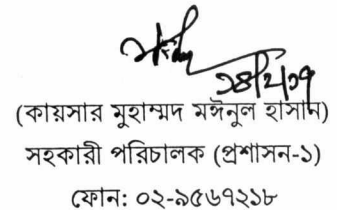 ১৪/২/১৭
(কায়সার মুহাম্মদ মঈনুল হাসান)
সহকারী পরিচালক (প্রশাসন-১)
ফোন: ০২-৯৫৬৭২১৮